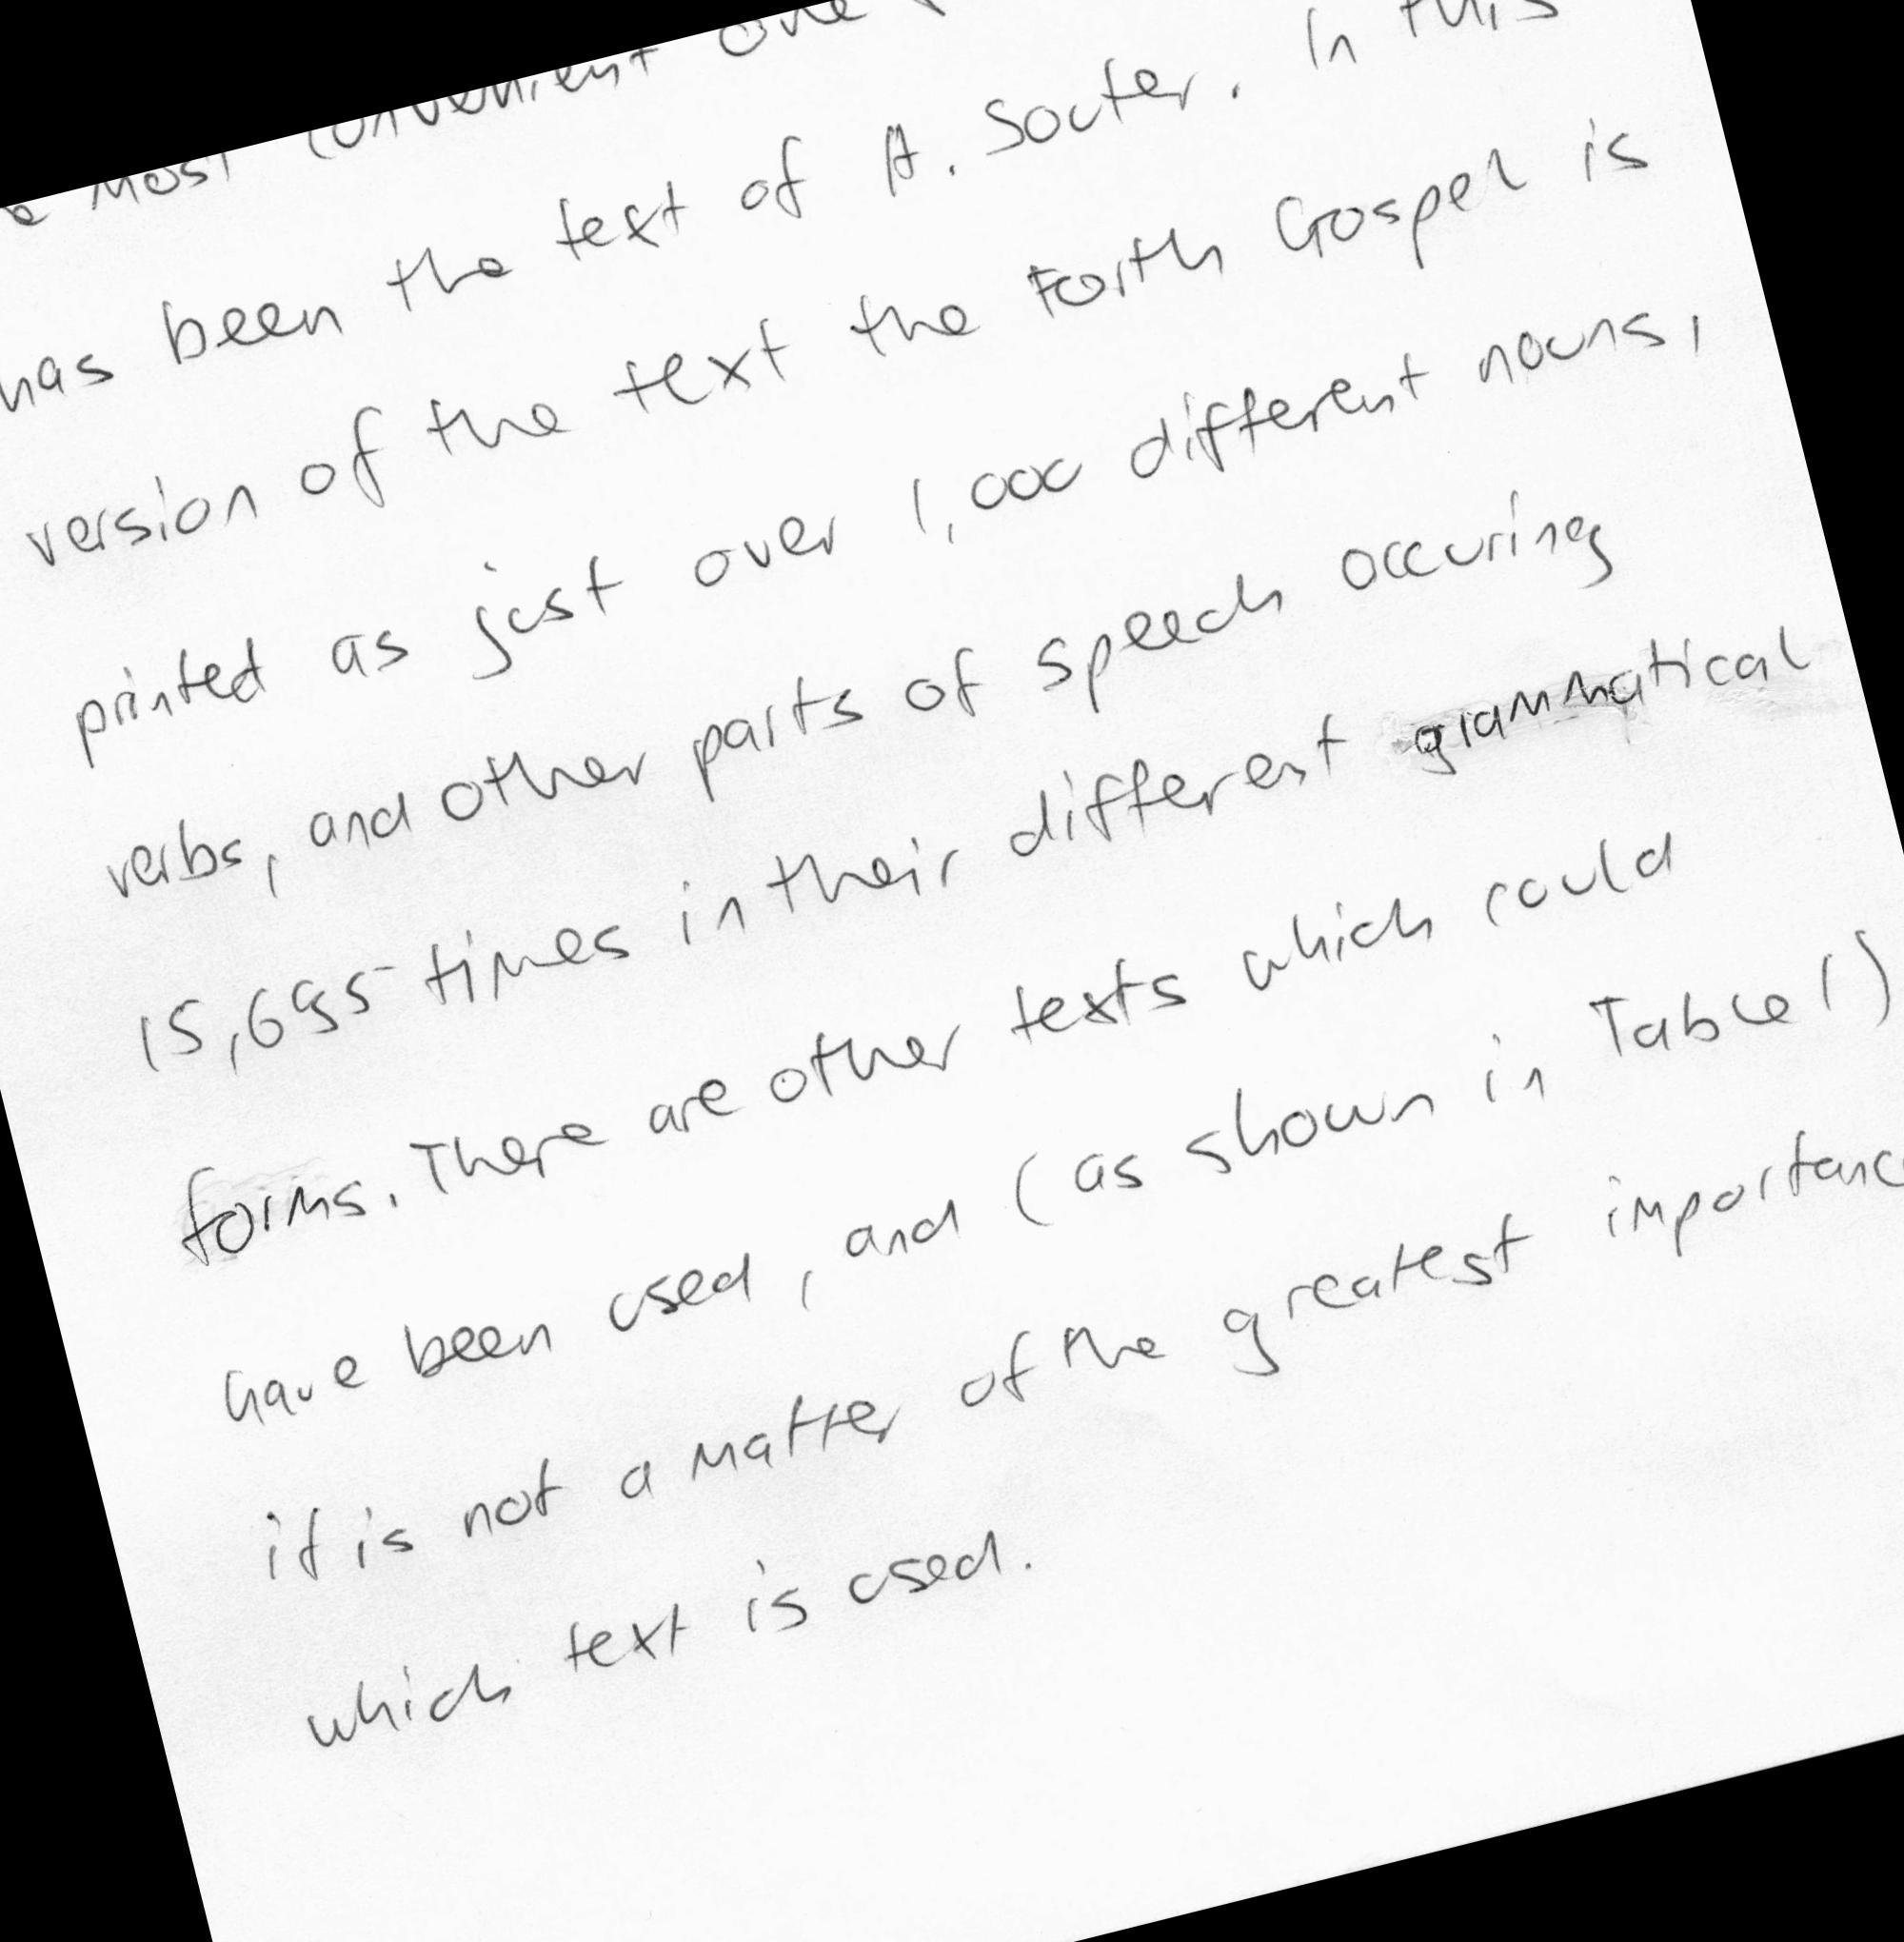 most convenient one
has been the text of A. Souter. In this
version of the text the Forth Gospel is
printed as just over 1,000 different nouns,
verbs, and other parts of speech occuring
15,695 times in their different grammatical
forms. There are other texts which could
have been used, and (as shown in Table 1)
it is not a matter of the greatest importance
which text is used.